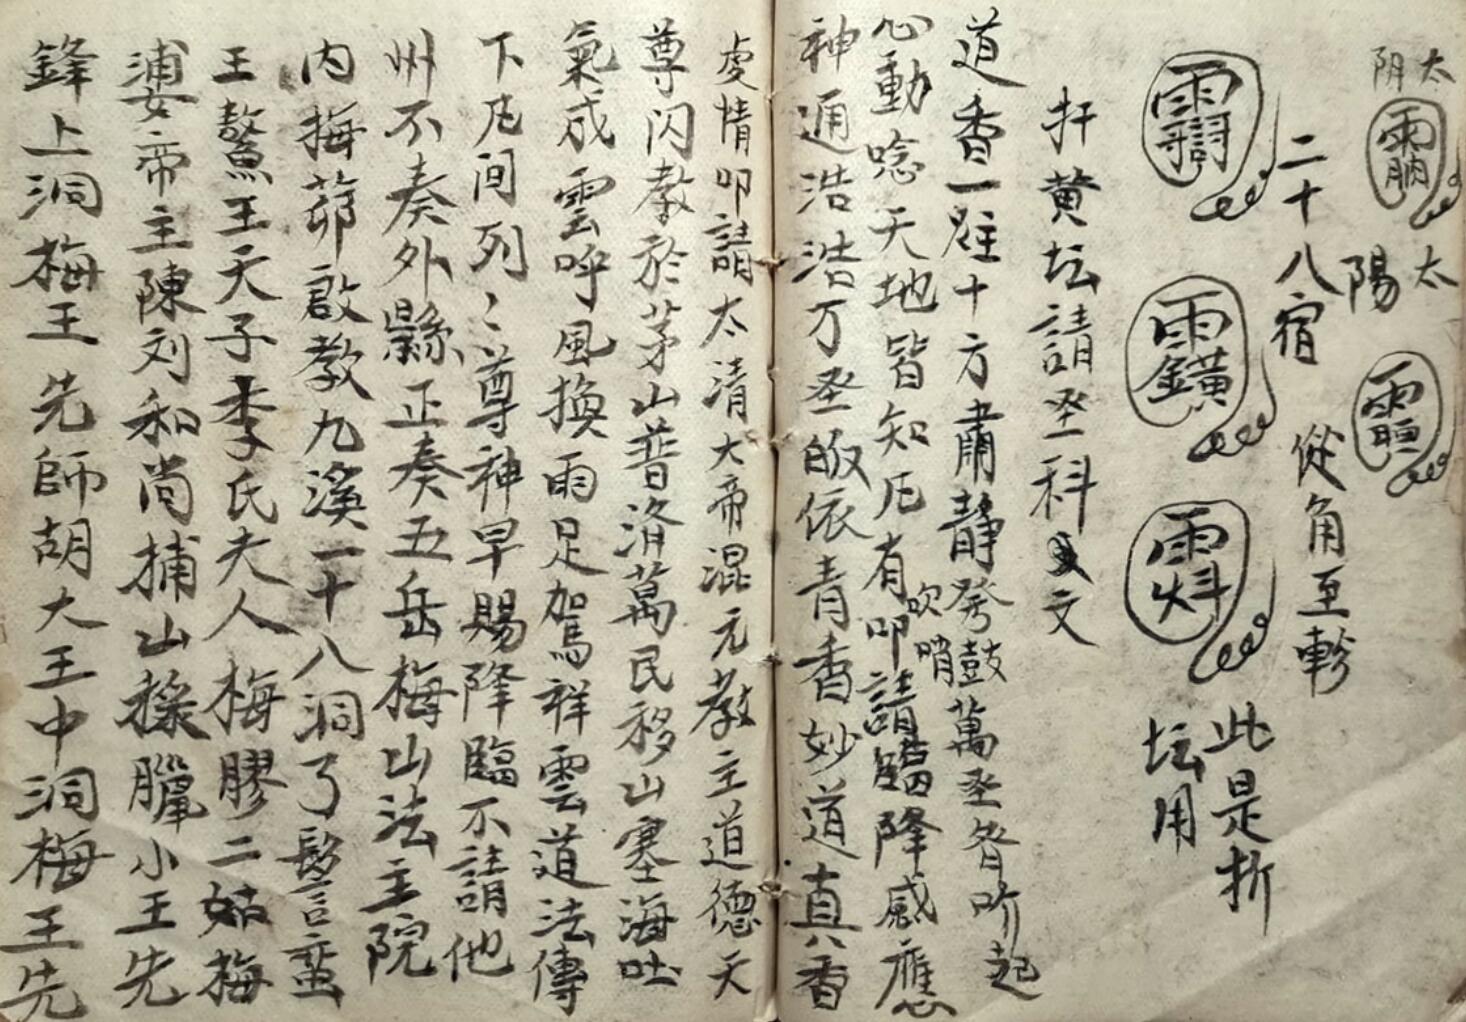 太阴
太陽
二十八宿 從角至軫
此是折
坛用
扞黄坛請圣一科文
道香一炷十方肅静発鼓萬圣皆吹起
吹哨
心動唸天地皆知凡有叩請臨降感應
神通浩浩万圣皈依青香妙道真香
虔情叩請太清大帝混元教主道德天
尊閃教於茅山普済萬民移山塞海吐
氣成雲呼風換雨足加駕祥雲道法傳
下凡间列〻尊神早賜降臨不請他
州不奏外縣正奏五岳梅山法主院
内梅節啟教九溪一十八洞了髟言蛮
王鰲王天子李氏夫人梅膠二姑梅
婆帝主陳刘和尚捕山採臘小王先
鋒上洞梅王先師胡大王中洞梅王先